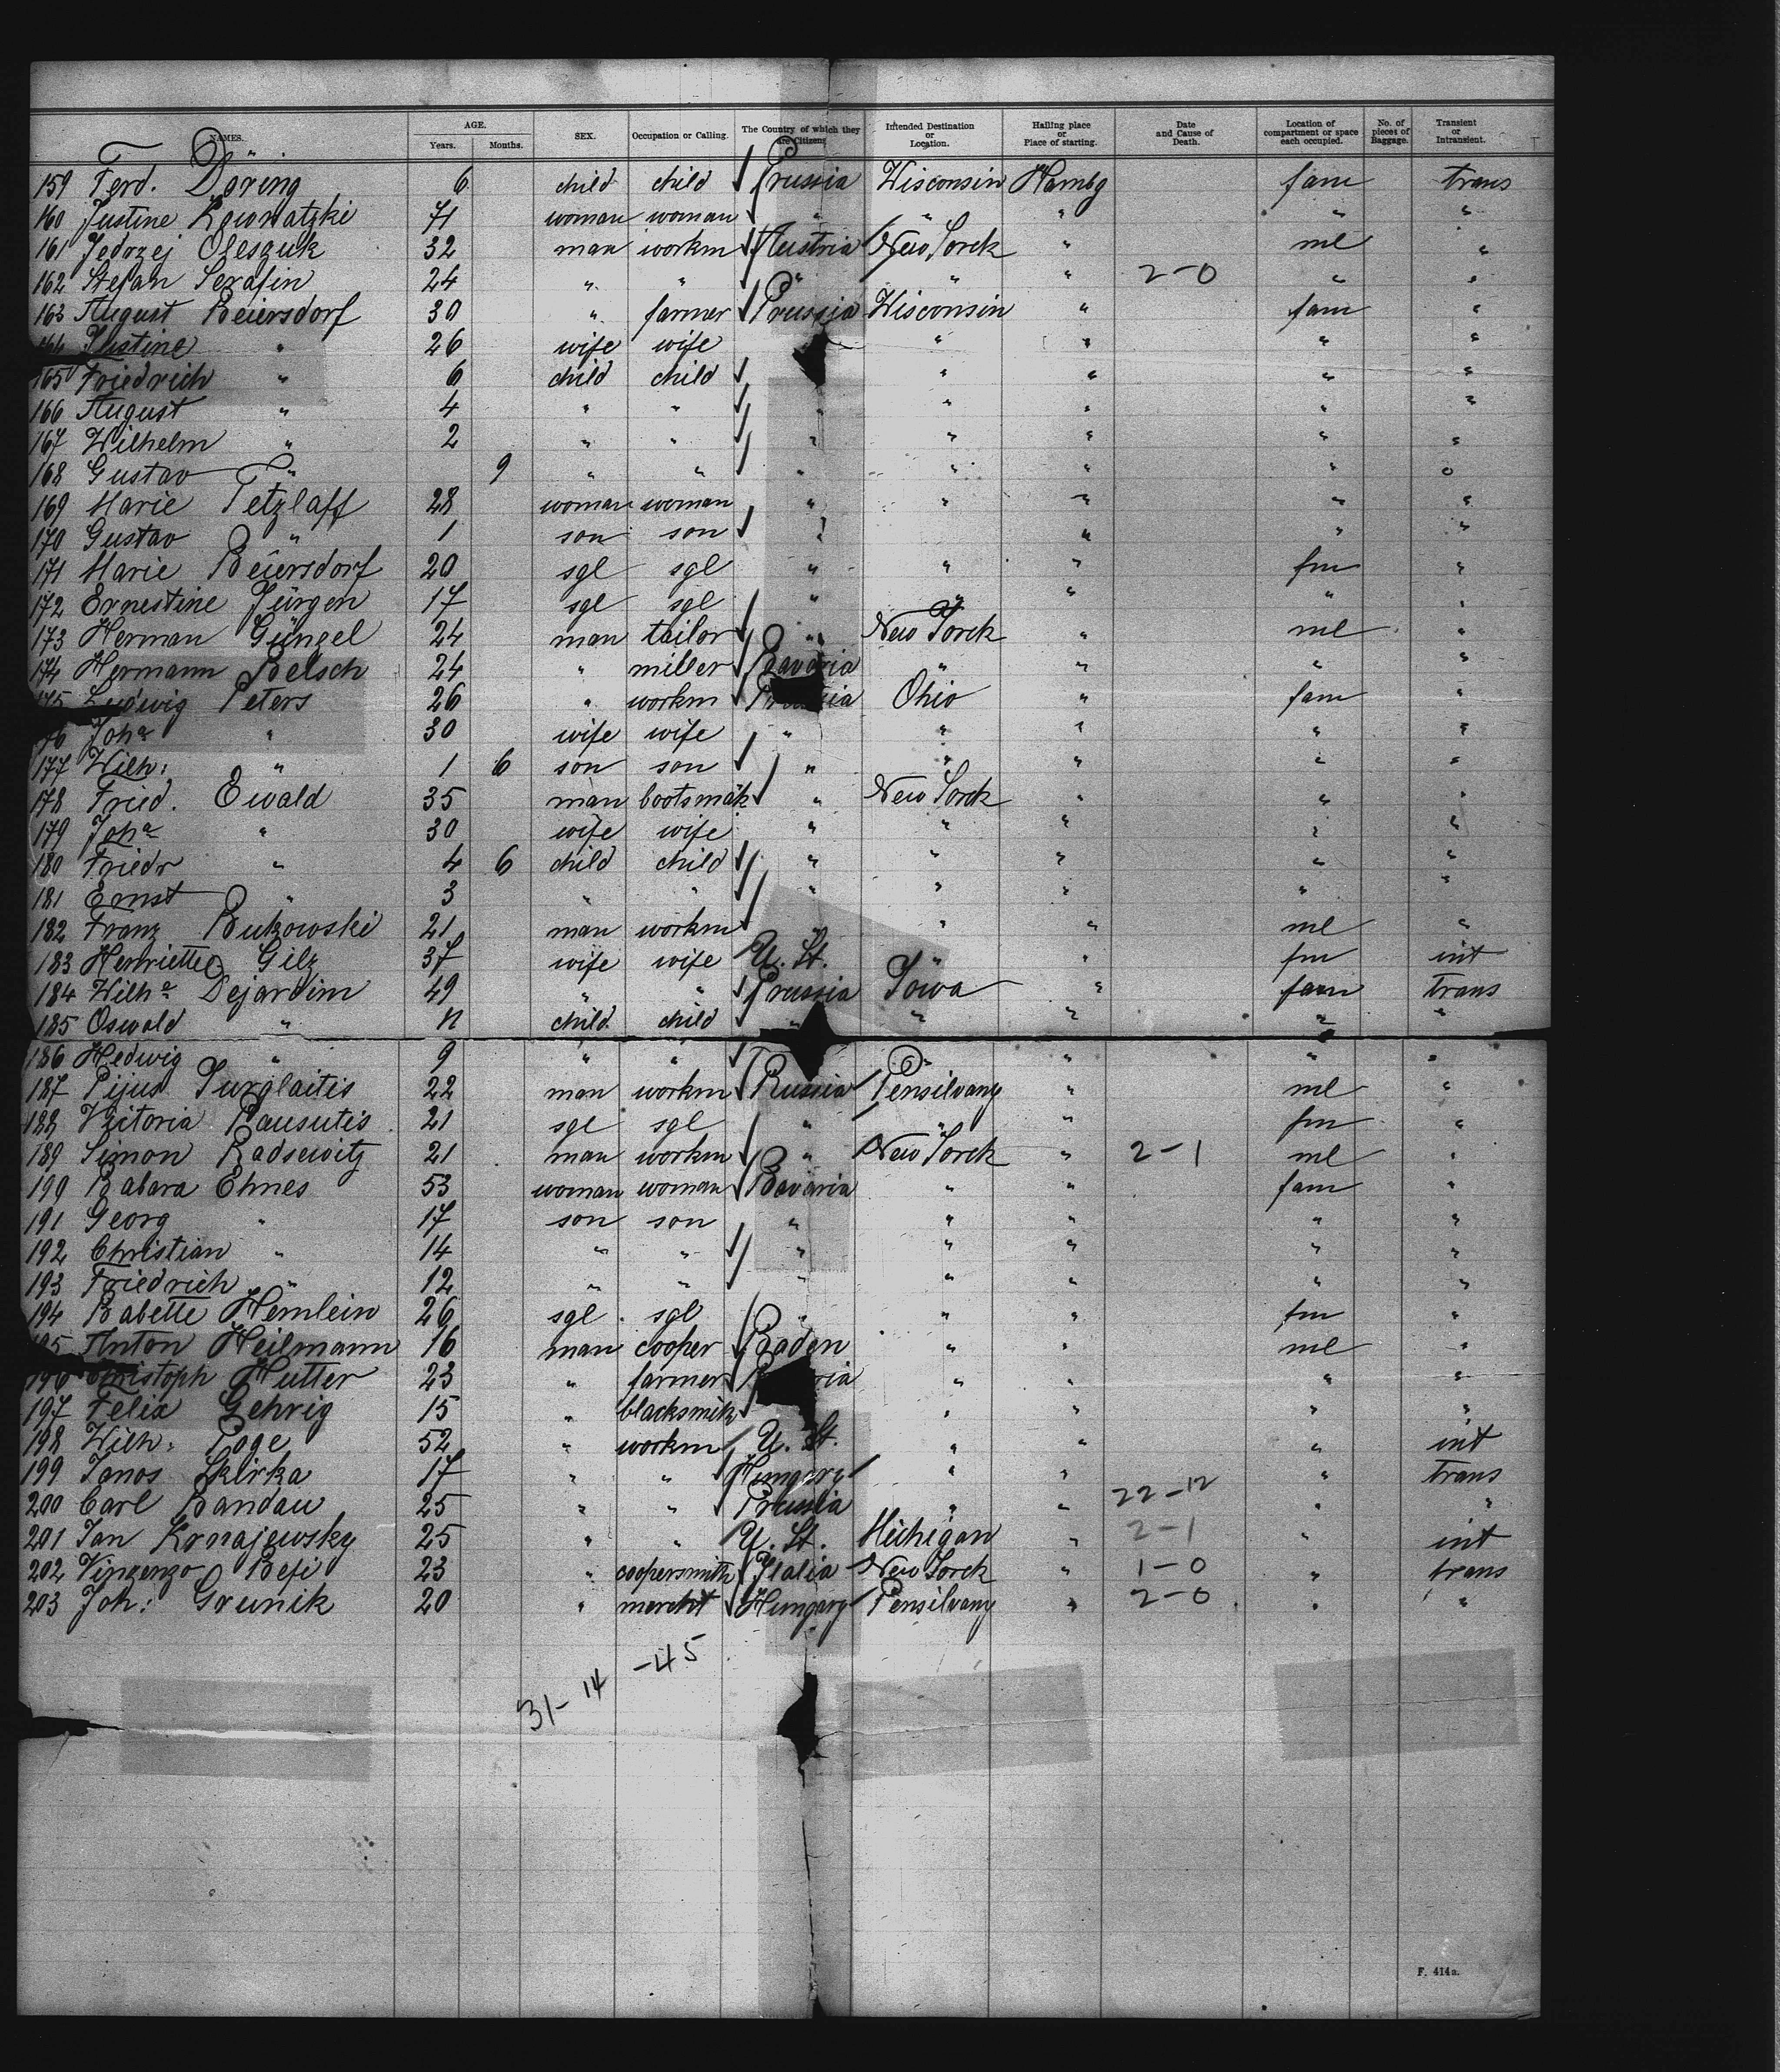 NAMES. AGE. Years. Months. SEX. Occupation or Calling. The Country of which they are Citizens Intended Destination or Location. Hailing place or Place of starting. Date and Cause of Death. Location of compartment or space each occupied. No. of pieces of Baggage. Transient or Intransient.
159 Ferd. Döring 6 child child Prussia Wisconsin Hambg fam trans
160 Justine Kownatzki 71 woman woman " " " " "
161 Jedrzej Olesguk 32 man workm Austria New Yorck " ml "
162 Stefan Serafin 24 " " " " " 2-0 " "
163 August Beiersdorf 30 " farmer Prussia Wisconsin " fam "
164 Justine " 26 wife wife " " " "
165 Friedrich " 6 child child " " " "
166 August " 4 " " " " " " "
167 Wilhelm " 2 " " " " " " "
168 Gustav " 9 " " " " " " "
169 Marie Tetzlaff 28 woman woman " " " " "
170 Gustav " 1 son son " " " "
171 Marie Beiersdorf 20 sgl sgl " " " fm "
172 Ernestine Jürgen 17 sgl sgl " " " " "
173 Herman Güngel 24 man tailor " New Yorck " ml "
174 Hermann Belsch 24 " miller Bavaria " " " "
175 Ludwig Peters 26 " workm Prussia Ohio " fam "
176 Joha " 30 wife wife " " " " "
177 Wilh: " 1 6 son son " " " " "
178 Fried. Ewald 35 man bootsmak " New Yorck " " "
179 Joha " 30 wife wife " " " " "
180 Friedr " 4 6 child child " " " " "
181 Ernst " 3 " " " " " " "
182 Franz Bukowski 21 man workm " " ml "
183 Henriette Gilz 37 wife wife U. St. " " fm int
184 Wilha Dejardim 49 " " Prussia Iowa " fam trans
185 Oswald " 11 child child " " " " "
186 Hedwig " 9 " " " " " "
187 Pijus Surglaitis 22 man workm Russia Pensilvany " ml "
188 Victoria Bausutis 21 sgl sgl " " " fm "
189 Simon Radsewitz 21 man workm " New Yorck " 2-1 ml "
190 Babara Ehnes 53 woman woman Bavaria " " fam "
191 Georg " 17 son son " " " " "
192 Christian " 14 " " " " " " "
193 Friedrich " 12 " " " " " " "
194 Babette Hemlein 26 sgl sgl " " " fm "
195 Anton Heilmann 16 man cooper Baden " " ml "
196 Christoph Hutter 23 " farmer " " " "
197 Felix Gehrig 15 " blacksmith " " " "
198 Wilh: Poge 52 " workm U. St. " " " int
199 Janos Skirka 17 " " Hungary " " " trans
200 Carl Bandau 25 " " Prussia " " 22-12 " "
201 Jan Krnajewsky 25 " " U. St. Michigan " 2-1 " int
202 Vinzenzo Befi 23 " coopersmith Italia New Yorck " 1-0 " trans
203 Joh: Grunik 20 " mercht Hungary Pensilvany " 2-0 " "
31-14-45
F. 414a.